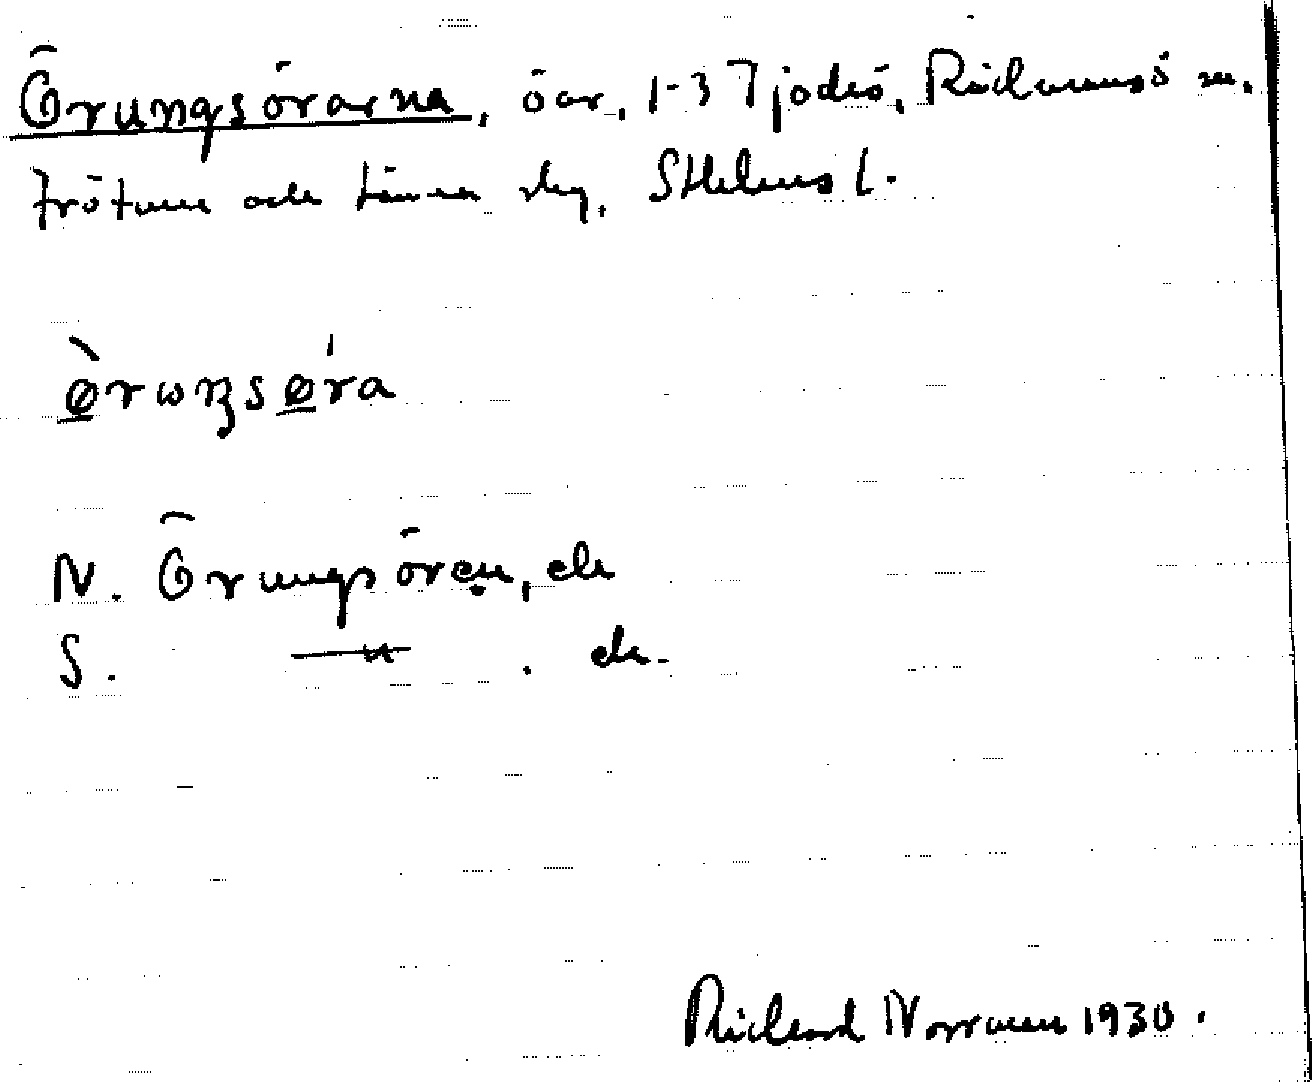 Örungsörarna, öar, 1-3 Tjockö, Rådmansö sn.
Frötuna och Länna skg. Sthlms l.
ø̀roŋsøra
N. Örungsören, ek
S. —"—. ek.
Richard Norrman 1930.